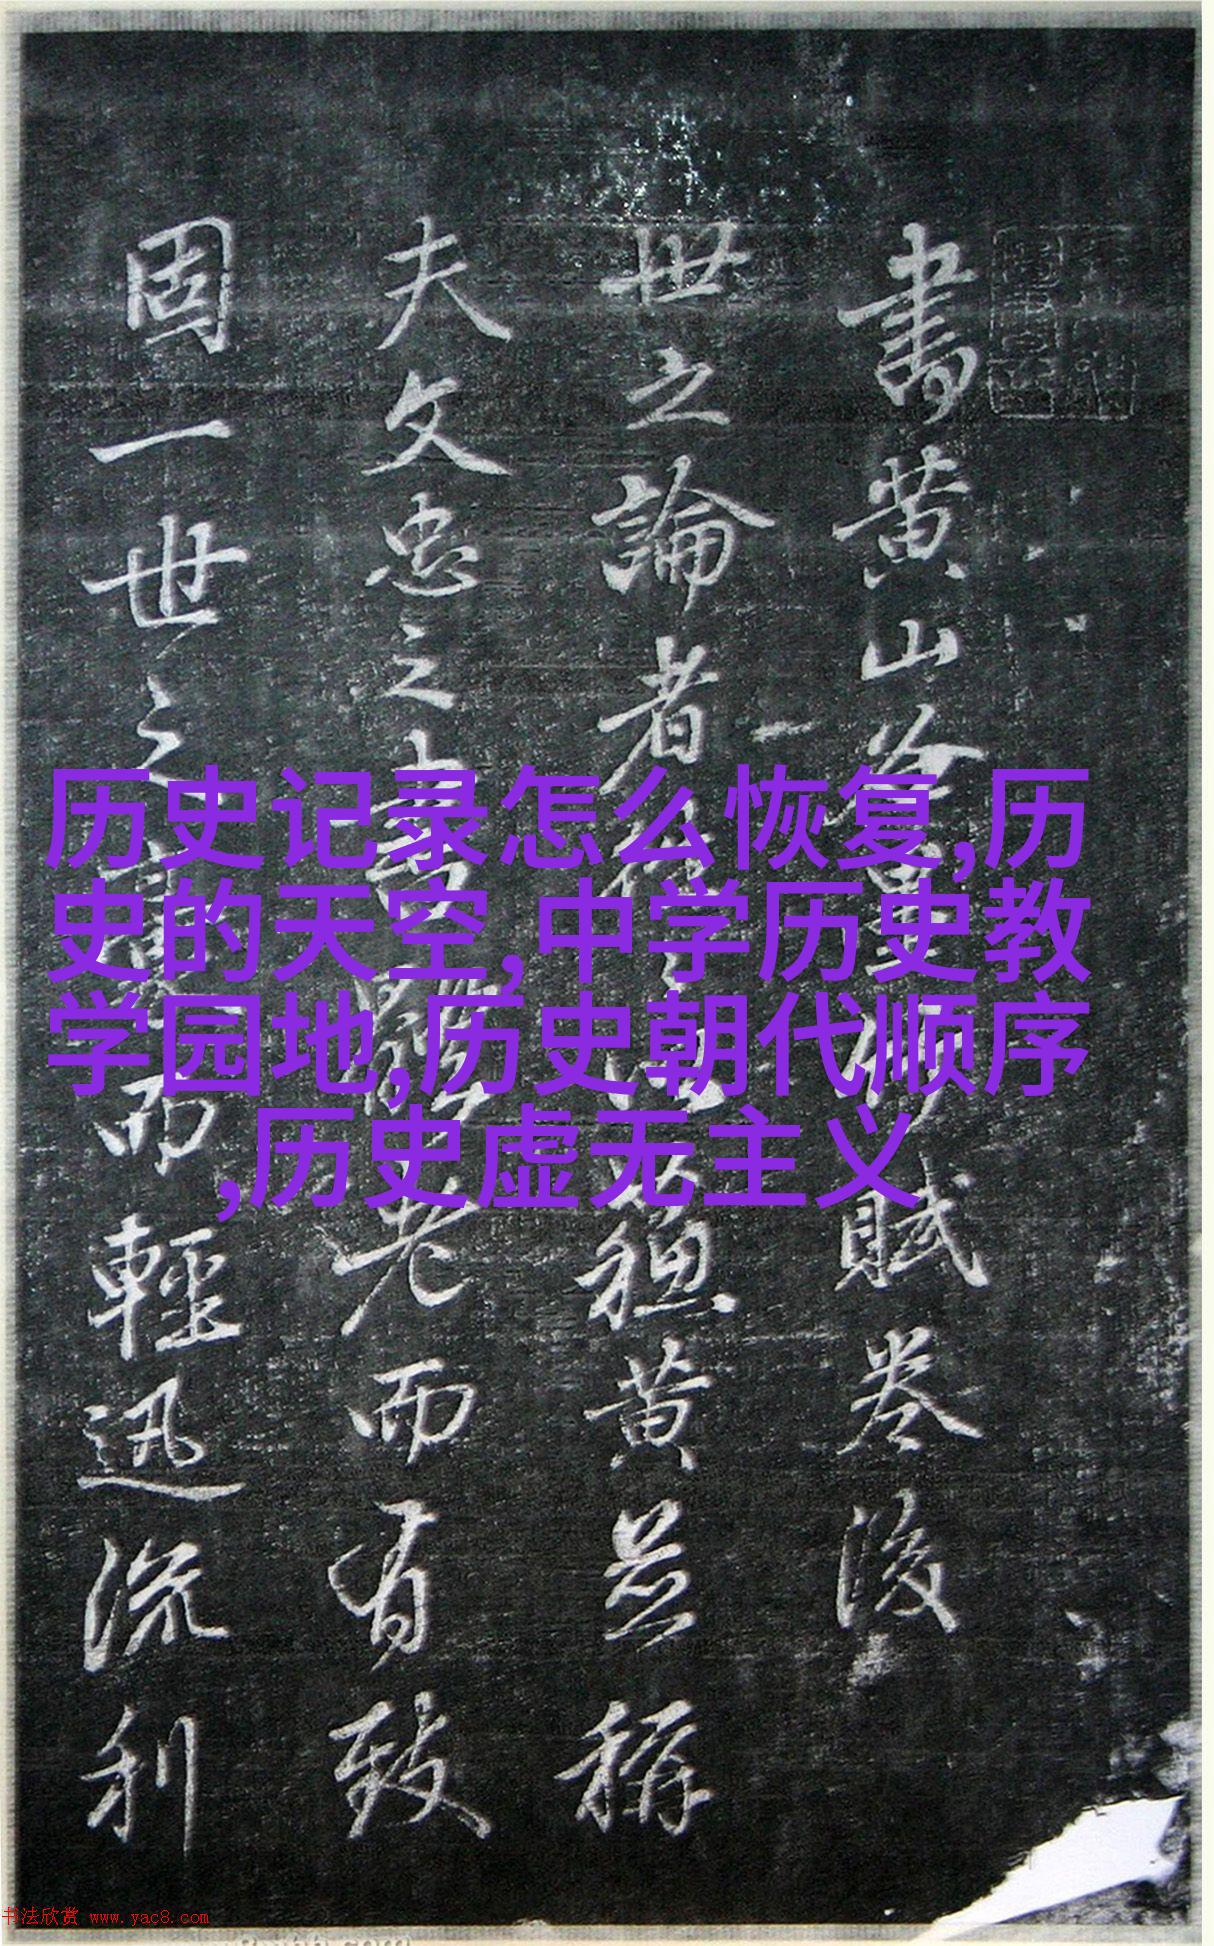 書黄山谷
賦卷後
世之論者
蘓黄並稱
夫文忠之書
老而有致
固一世之
而輕迅流利
历史记录怎么恢复,历
史的天空,中学历史教
学园地,历史朝代顺序
,历史虚无主义
书法欣赏 www.yac8.com